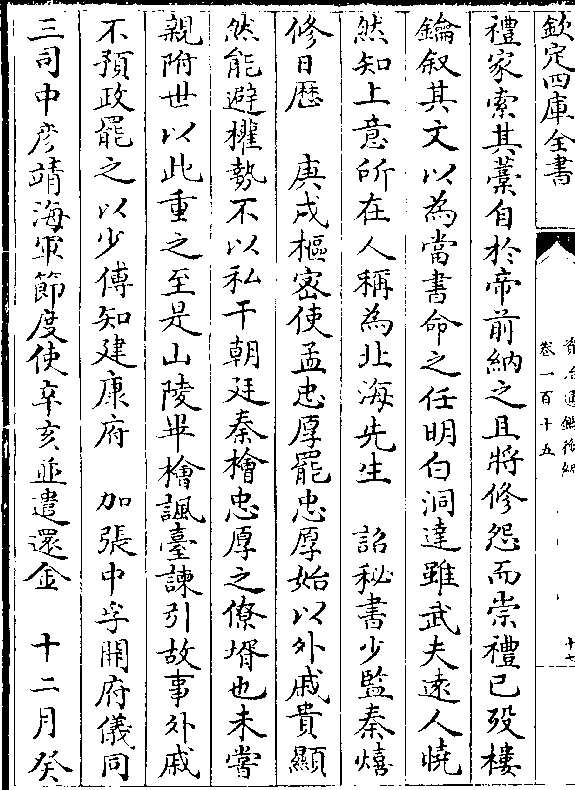 欽定四庫全書
資治通鑑後編
卷一百十五
十七
禮家索其藁自於帝前納之且將修怨而崇禮已殁樓
鑰叙其文以為當書命之任明白洞達雖武夫遠人曉
然知上意所在人稱為北海先生 詔秘書少監秦熺
修日厯 庚戌樞密使孟忠厚罷忠厚始以外戚貴顯
然能避權勢不以私干朝廷秦檜忠厚之僚壻也未嘗
親附世以此重之至是山陵畢檜諷臺諫引故事外戚
不預政罷之以少傅知建康府 加張中孚開府儀同
三司中彦靖海軍節度使辛亥並遣還金 十二月癸